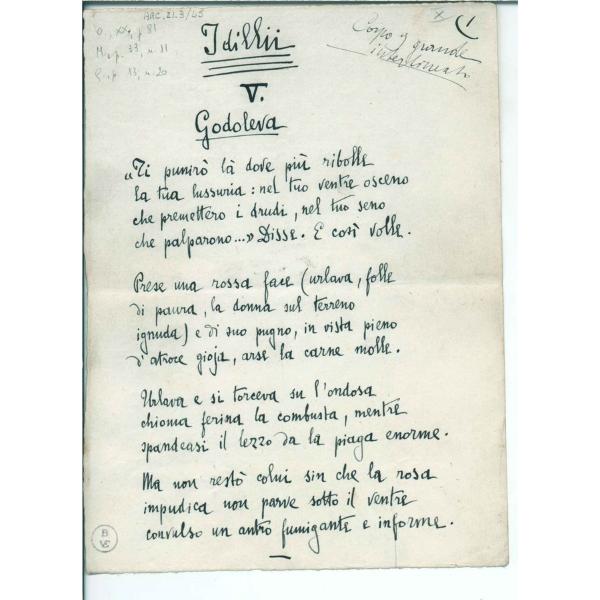 ARC.21.3/45
O., XX, p 81
M., p. 33, n. 11
p. 13, n. 20
X
(1
Corpo 9 grande
interlineato
Idillii
V.
Godoleva
"Ti punirò là dove più ribolle
la tua lussuria: nel tuo ventre osceno
che premettero i drudi, nel tuo seno
che palparono...» Disse. E così volle.
Prese una rossa face (urlava, folle
di paura, la donna sul terreno
ignuda) e di suo pugno, in vista pieno
d'atroce gioja, arse la carne molle.
Urlava e si torceva su l'ondosa
chioma ferina la combusta, mentre
spandeasi il lezzo da la piaga enorme.
Ma non restò colui sin che la rosa
impudica non parve sotto il ventre
convulso un antro fumigante e informe.